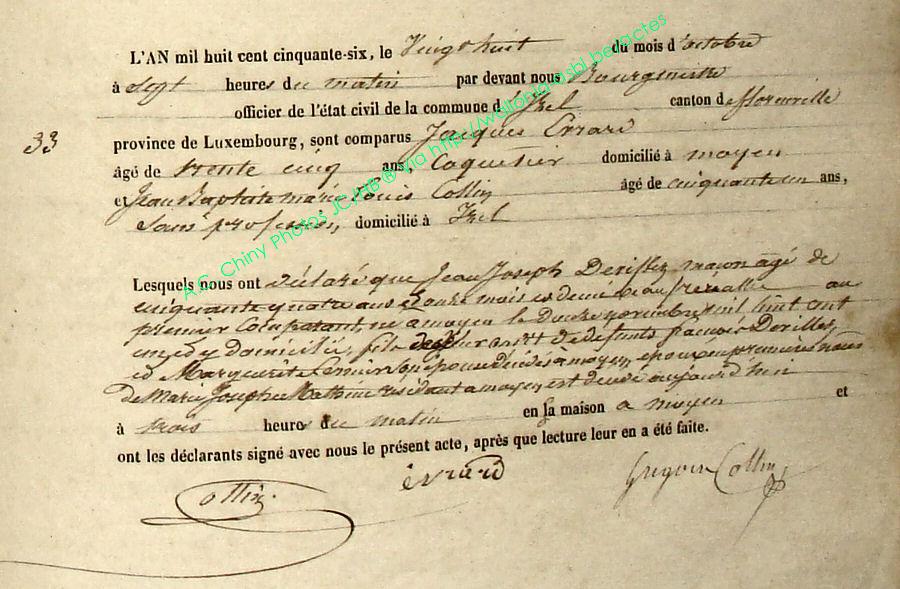 L'AN mil huit cent cinquante-six, le Vingt huit du mois d'octobre
à Sept heures du matin par devant nous Bourgmestre
officier de l'état civil de la commune d'Izel canton de florenville
33
province de Luxembourg, sont comparus Jacques Evrard
âgé de trente cinq ans, Coquetier domicilié à moyen
et Jean Baptiste marie Louis Collin âgé de cinquante un ans,
Sans profession, domicilié à Izel
Lesquels nous ont déclaré que Jean Joseph Derille maçon agé de
cinquante quatre ans onze mois et demi beau frere au
premier Comparant, né a moyen le Douze novembre mil huit cent
un et y Domicilié, fils de Defunts françois Derille,
et Marguerite son épouse décédés à moyen, époux en premieres noces
De Marie Joseph Mathieu residant a moyen, est decedé aujourd'hui
à trois heures du matin en sa maison a moyen et
ont les déclarants signé avec nous le présent acte, après que lecture leur en a été faite.
Collin evrard Gregoire Collin
A.G. Chiny Photos JCHB ® via http://wallonia.asbl.be/actes